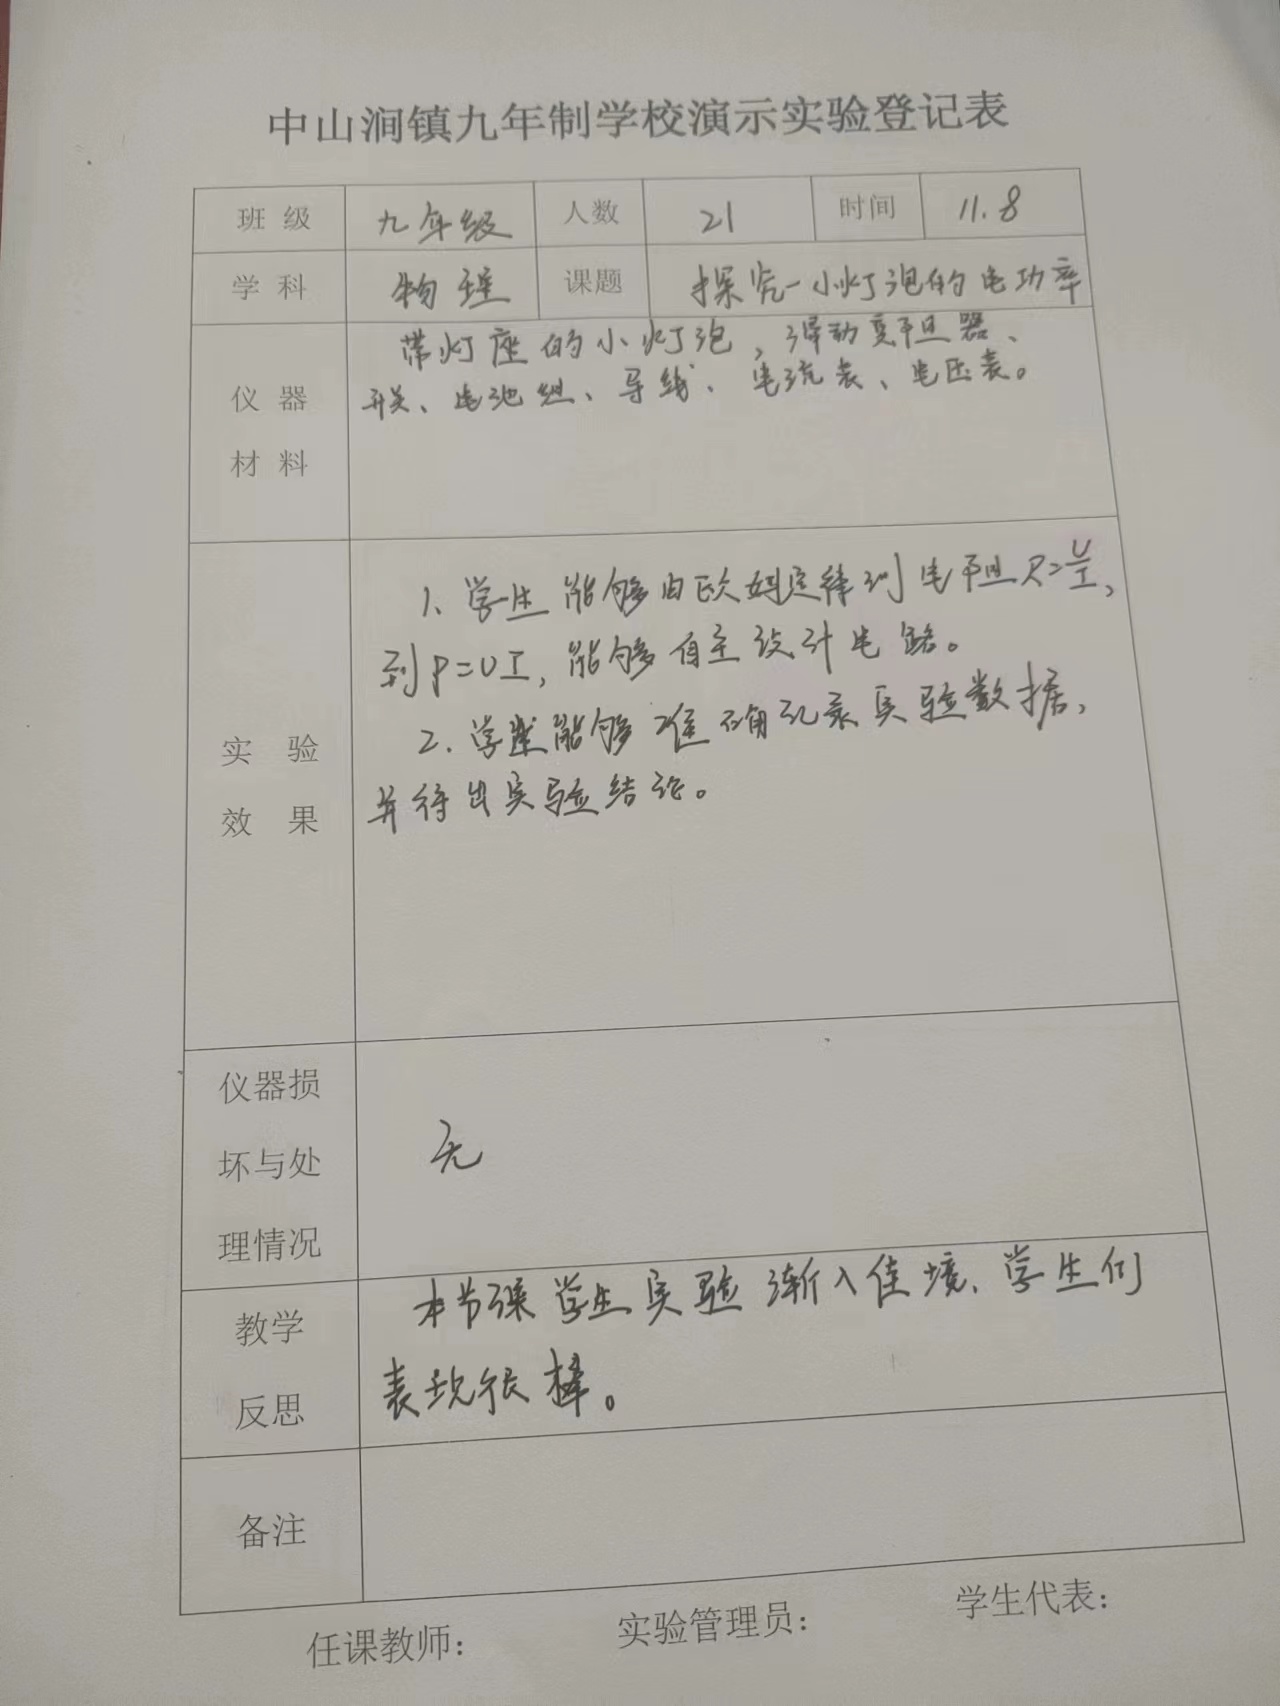 中山涧镇九年制学校演示实验登记表
班 级 九年级 人数 21 时间 11.8
学 科 物理 课题 探究小灯泡的电功率
仪 器
材 料
带灯座的小灯泡,滑动变阻器、
开关、电池组、导线、电流表、电压表。
实 验
效 果
1、学生能够由欧姆定律到电阻R=U/I,
到P=UI,能够自主设计电路。
2.学生能够准确记录实验数据,
并得出实验结论。
仪器损
坏与处
理情况
无
教学
反思
本节课学生实验渐入佳境、学生们
表现很棒。
备注
任课教师: 实验管理员: 学生代表: